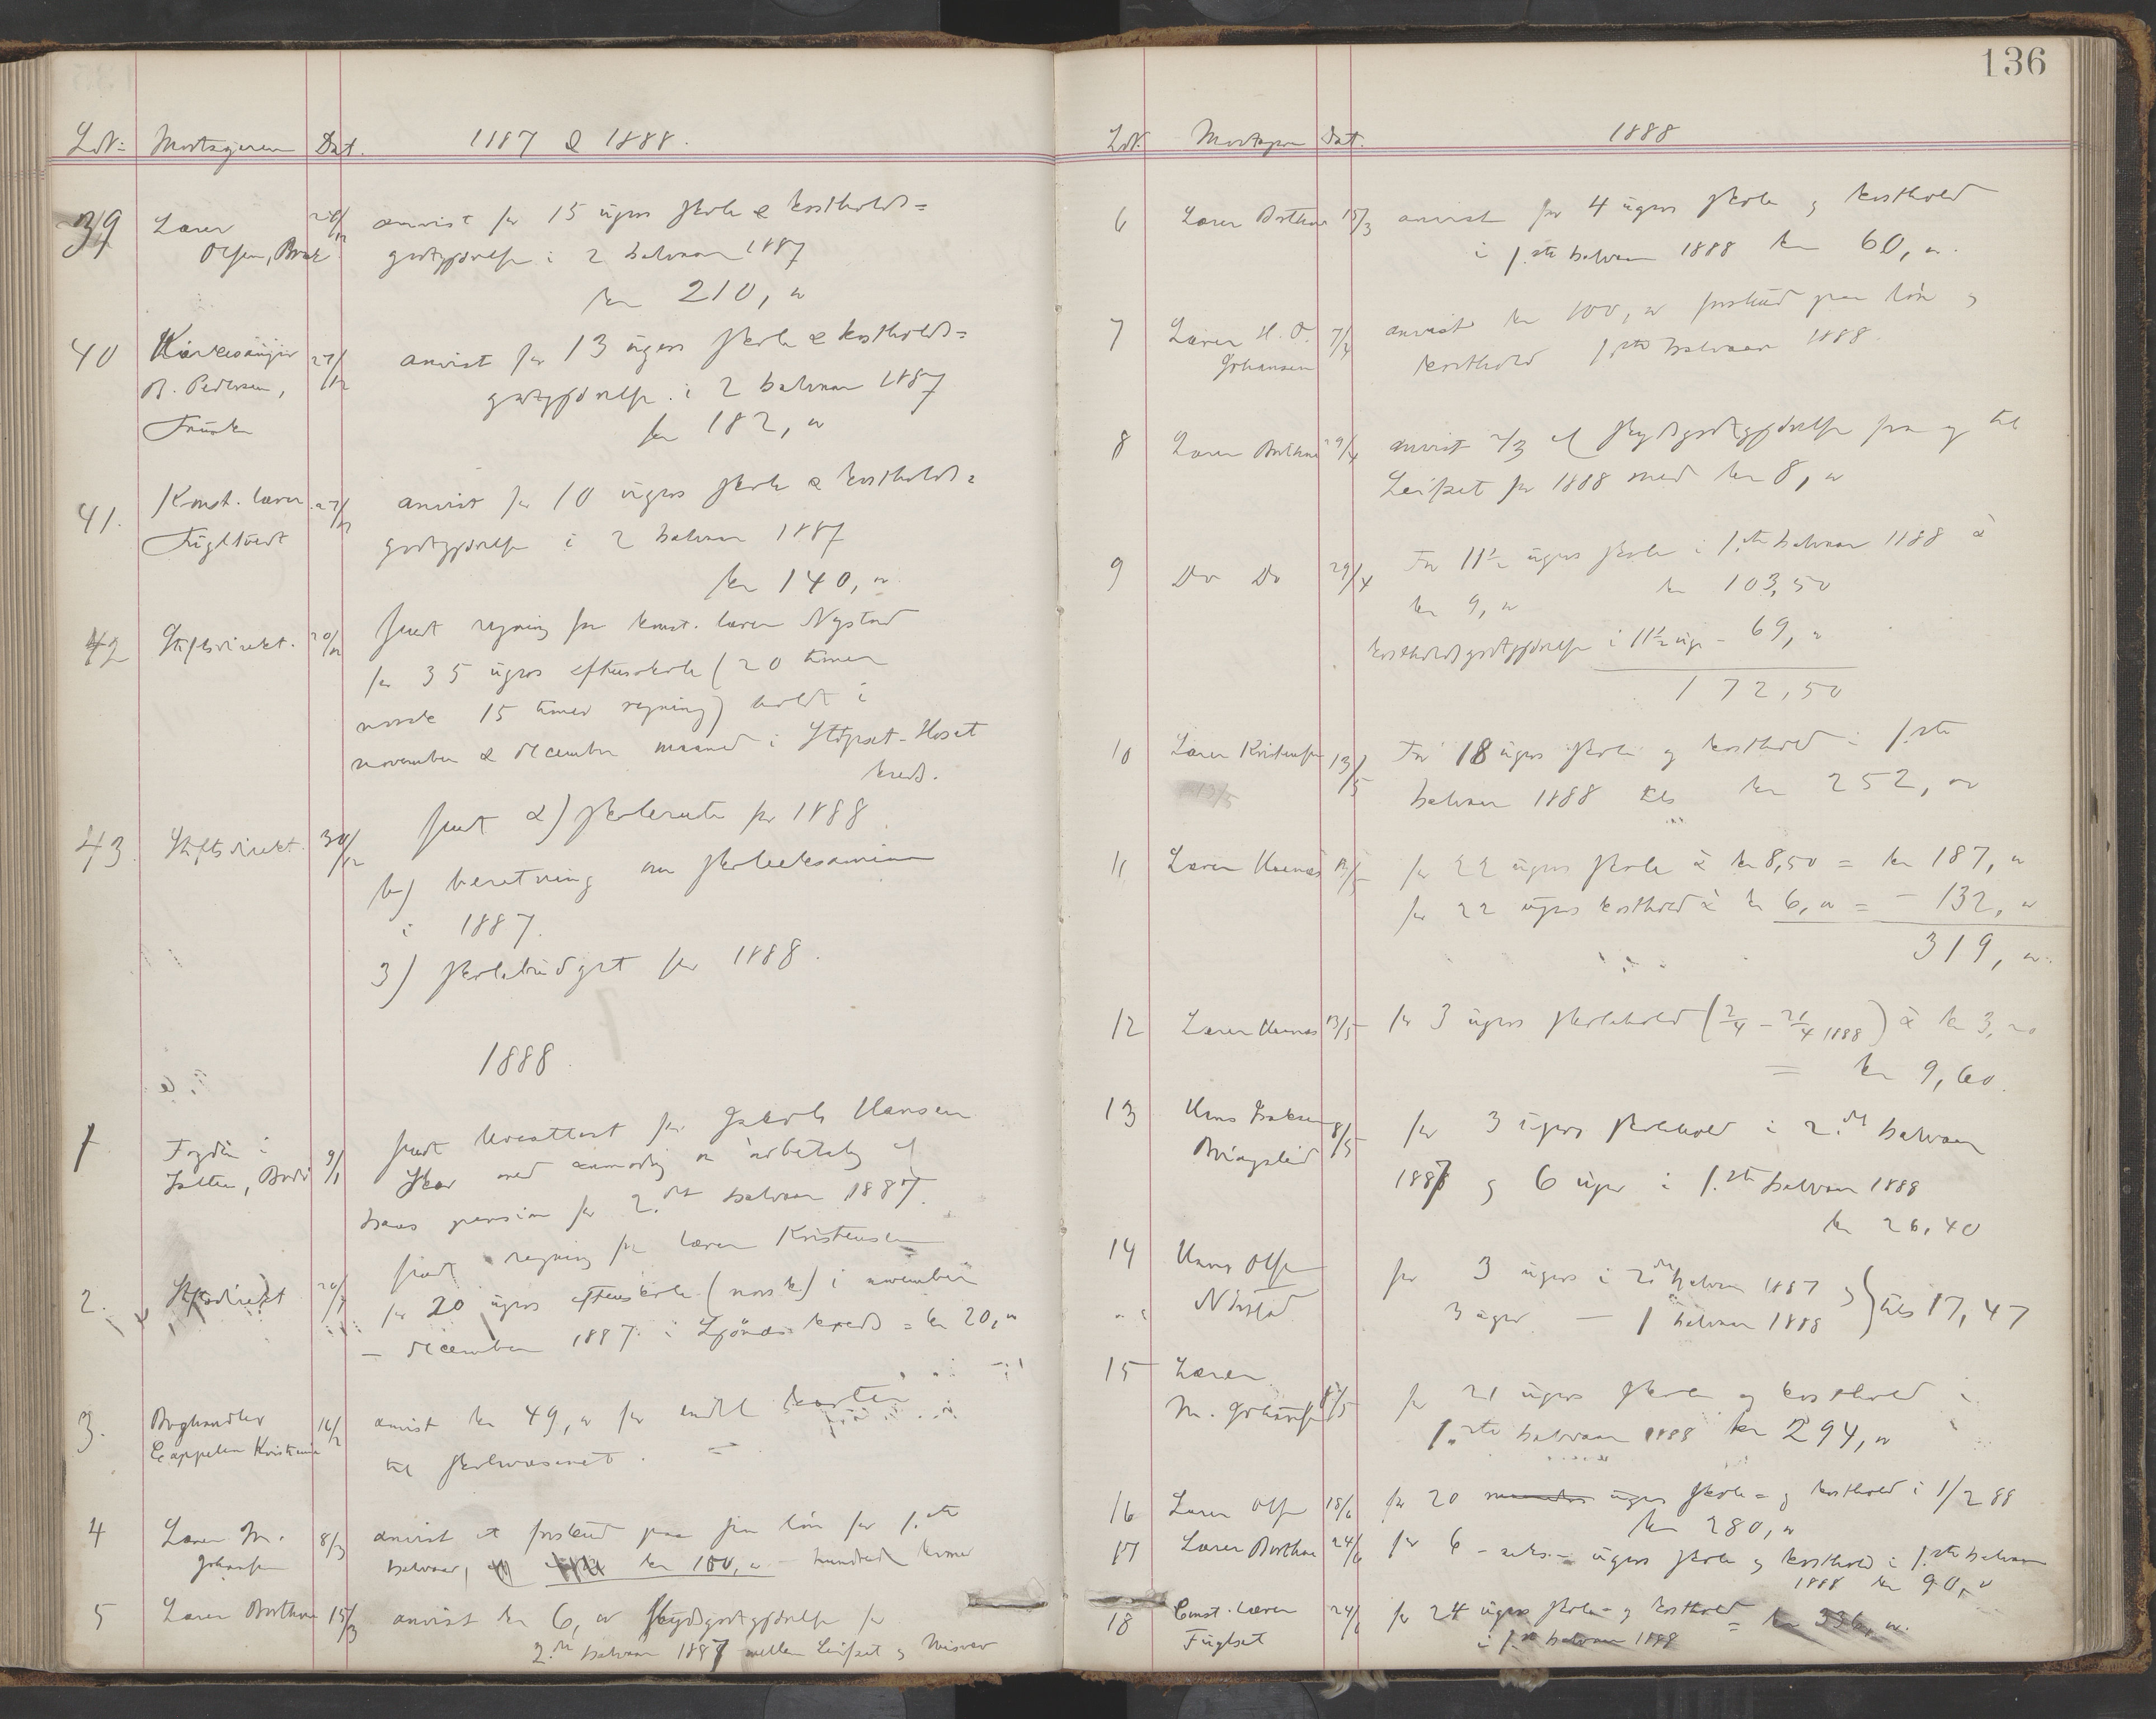 LN: Modtageren Dat. 1887 & 1888.
39 Lærer 28/12 anvist for 15 ugers skole & kostholds=
Olsen, godtgjørelse i 2 halvaar 1887
kr 210,
40 Kirkesanger 27/12 anvist for 13 ugers skole & kostholds=
B. Pedersen, godtgjørelse i 2 halvaar 1887
kr 182,
41. Konst. lærer 27/12 anvist for 10 ugers skole & kostholds=
godtgjørelse i 2 halvaar 1887
kr 140,
42 Stiftsdirekt. sendt regning for konst. lærer Nystad
for 35 ugers aftenskole (20 timer
norsk 15 timer regning) holdt i
november & december maaned i
kreds.
43 Stiftsdirekt. 30/12 sendt a) skoleruten for 1888
b) beretning om skoleeksamen
i 1887.
3) skolebudget for 1888.
1888.
1 Fogden i 9/1 sendt leveattest for Jakob Hansen
Salten, Bodø med anmodning om udbetaling af
hans pension for 2.det halvaar 1887.
2. Stiftsdirekt sendt regning for lærer Kristensen
for 20 ugers aftenskole (norsk) i november
— december 1887 i kreds = kr 20,
3. Boghandler 16/2 anvist kr 49, for karter
Cappelen Kristiania til skolevæsenet.
4 Lærer M. 8/3 anvist et forskud paa sin løn for 1.ste
Johansen halvaar, kr 100, — hundrede kroner
5 Lærer 15/3 anvist kr 6, skydsgodtgjørelse for
2.det halvaar 1887 mellem Leifset og Misvær
136
LN. Modtager Dat. 1888
6 Lærer 15/3 anvist for 4 ugers skole og kosthold
i 1.ste halvaar 1888 kr 60,
7 Lærer H. O. 7/4 anvist kr 100, forskud paa løn og
Johansen kosthold 1ste halvaar 1888.
8 Lærer 29/4 anvist 2/3 af skydsgodtgjørelse fra og til
Leifset for 1888 med kr 8,
9 Do Do 29/4 For 11½ ugers skole i 1.ste halvaar 1888 à
kr 9, kr 103,50
kostholdsgodtgjørelse i 11½ uge - 69,
172,50
10 Lærer Kristensen 13/5 For 18 ugers skole og kosthold i 1.ste
13/5 halvaar 1888 tils kr 252,
11 Lærer for 22 ugers skole à kr 8,50 = kr 187,
for 22 ugers kosthold à kr 6, = - 132,
319,
12 Lærer 13/5 for 3 ugers skolehold (2/4 - 21/4 1888) à kr 3,20
= kr 9,60.
13 Hans Isaksen 8/5 for 3 ugers skolehold i 2.det halvaar
1887 og 6 uger i 1.ste halvaar 1888
kr 26,40
14 Hans Olsen for 3 ugers i 2det halvaar 1887 og } tils 17,47
3 uger — 1 halvaar 1888
15 Lærer
M. Johansen for 21 ugers skole og kosthold i
1.ste halvaar 1888 kr 294,
16 Lærer Olsen 18/6 for 20 ugers skole= og kosthold i 1/2 88
kr 280,
17 Lærer 24/6 for 6 - seks - ugers skole og kosthold i 1.ste halvaar
1888 kr 90,
18 Const. lærer 24/6 for 24 ugers skole- og kosthold = kr 336,
Fuglset i 1.ste halvaar 1888